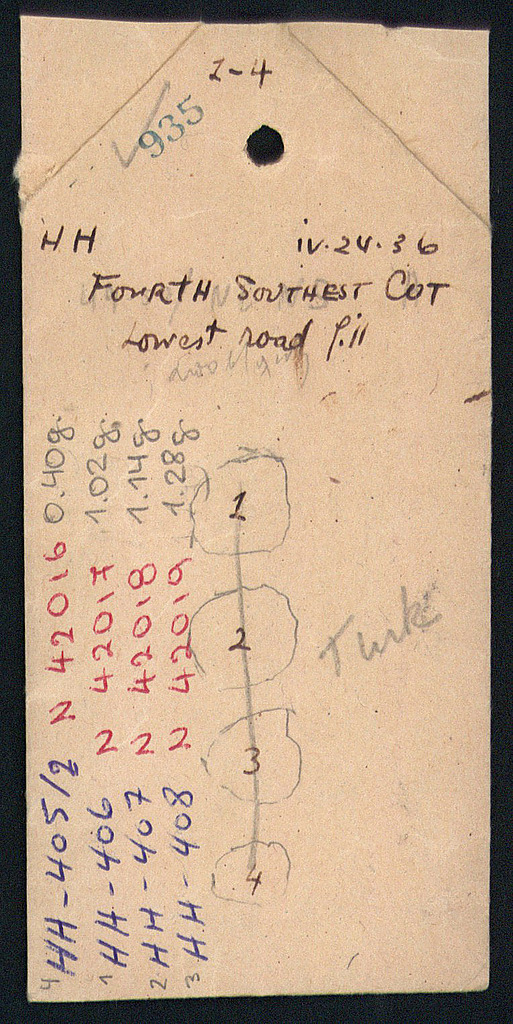 1-4
935
HH iv.24.36
FOURTH SOUTHEST CUT
Lowest road fill
1
2
3
4
Turk
4 HH-405/2 N 42016 0.40g.
1 HH-406 N 42017 1.02g.
2 HH-407 N 42018 1.14g.
3 HH-408 N 42019 1.28g.